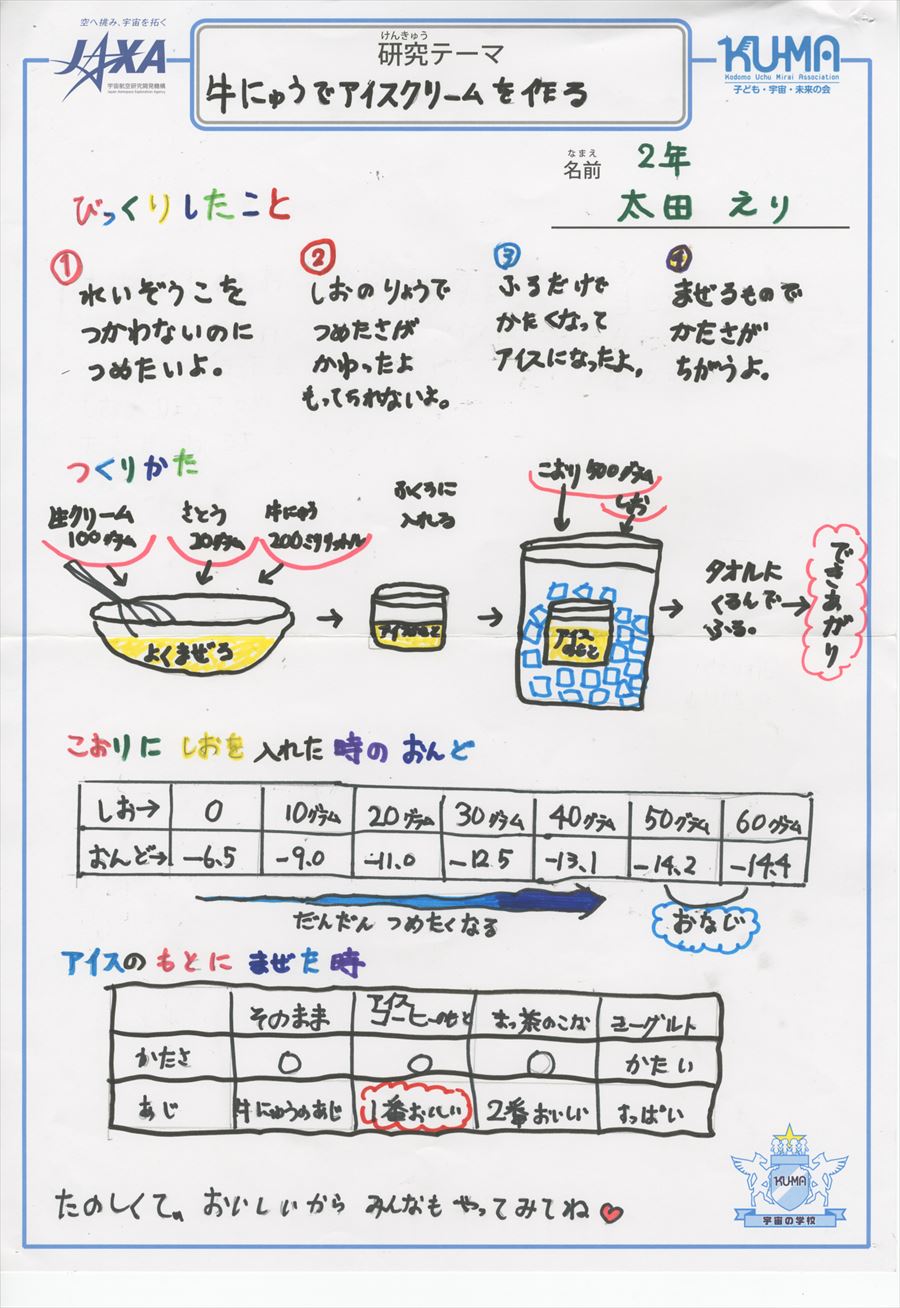 空へ挑み、宇宙を拓く
JAXA
宇宙航空研究開発機構
Japan Aerospace Exploration Agency
けんきゅう
研究テーマ
牛にゅうでアイスクリームを作る
KU-MA
Kodomo Uchu Mirai Association
子ども・宇宙・未来の会
なまえ
名前
2年
太田 えり
びっくりしたこと
①
れいぞうこを
つかわないのに
つめたいよ。
②
しおのりょうで
つめたさが
かわったよ
もってられないよ。
③
ふるだけで
かたくなって
アイスになったよ。
④
まぜるもので
かたさが
ちがうよ。
つくりかた
生クリーム
100グラム
さとう
20グラム
牛にゅう
200ミリリットル
よくまぜる
ふくろに
入れる
アイスのもと
こおり500グラム
しお
アイス
のもと
タオルに
くるんで
ふる。
できあがり
こおりに しおを 入れた 時の おんど
しお→ 0 10グラム 20グラム 30グラム 40グラム 50グラム 60グラム
おんど→ -6.5 -9.0 -11.0 -12.5 -13.1 -14.2 -14.4
だんだん つめたくなる
おなじ
アイスの もとに まぜた 時
そのまま アイスコーヒーのもと まっ茶のこな ヨーグルト
かたさ ○ ○ ○ かたい
あじ 牛にゅうのあじ 1番おいしい 2番おいしい すっぱい
たのしくて、おいしいから みんなも やってみてね♥
KU-MA
宇宙の学校